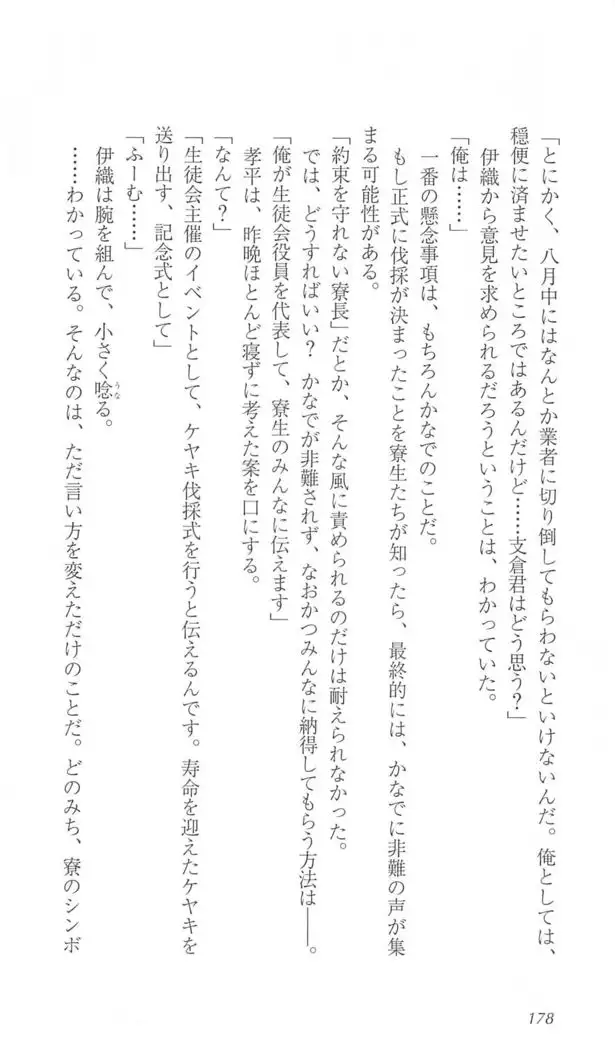 「とにかく、八月中にはなんとか業者に切り倒してもらわないといけないんだ。俺としては、
穏便に済ませたいところではあるんだけど……支倉君はどう思う？」
伊織から意見を求められるだろうということは、わかっていた。
「俺は……」
一番の懸念事項は、もちろんかなでのことだ。
もし正式に伐採が決まったことを寮生たちが知ったら、最終的には、かなでに非難の声が集
まる可能性がある。
「約束を守れない寮長」だとか、そんな風に責められるのだけは耐えられなかった。
では、どうすればいい？　かなでが非難されず、なおかつみんなに納得してもらう方法は――。
「俺が生徒会役員を代表して、寮生のみんなに伝えます」
孝平は、昨晩ほとんど寝ずに考えた案を口にする。
「なんて？」
「生徒会主催のイベントとして、ケヤキ伐採式を行うと伝えるんです。寿命を迎えたケヤキを
送り出す、記念式として」
「ふーむ……」
伊織は腕を組んで、小さく唸る。
うな
……わかっている。そんなのは、ただ言い方を変えただけのことだ。どのみち、寮のシンボ
178